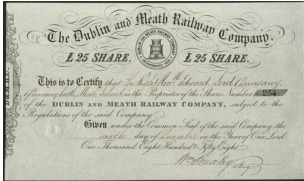 The Dublin and Meath Railway Company.
£25 SHARE. £25 SHARE.
This is to Certify that The Right Honble Edward Lord Dunsany
of Dunsany Castle Meath Ireland is the Proprietor of the Share Number 254
of the DUBLIN AND MEATH RAILWAY COMPANY, subject to the
Regulations of the said Company.
Given under the Common Seal of the said Company the
day of in the Year of Our Lord
One Thousand Eight Hundred & Fifty Eight